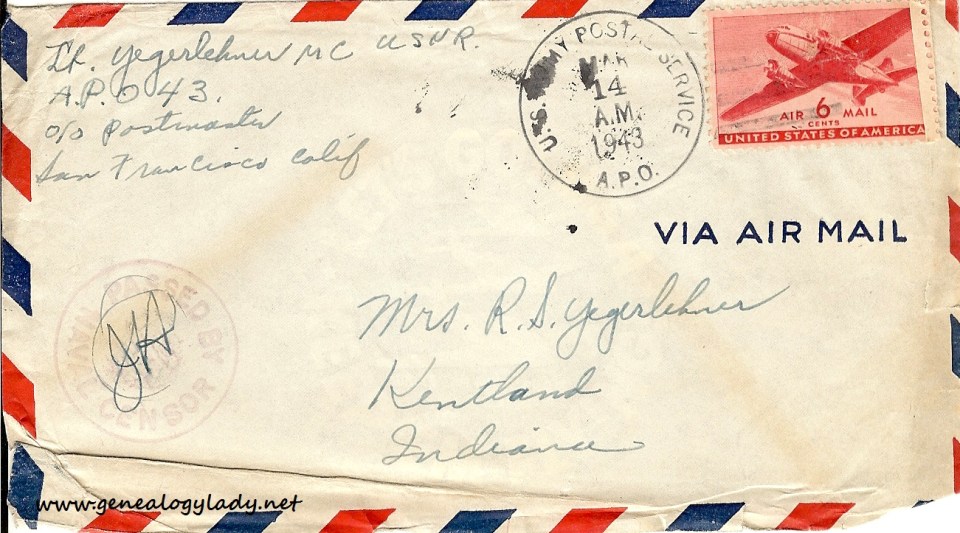 Lt. Yegerlehner MC USNR.
A.P.O 43.
c/o Postmaster
San Francisco Calif
U.S. ARMY POSTAL SERVICE
MAR
14
A.M.
1943
A.P.O.
AIR 6 MAIL
CENTS
UNITED STATES OF AMERICA
VIA AIR MAIL
PASSED BY
NAVAL CENSOR
JH
Mrs. R. S. Yegerlehner
Kentland
Indiana
www.genealogylady.net